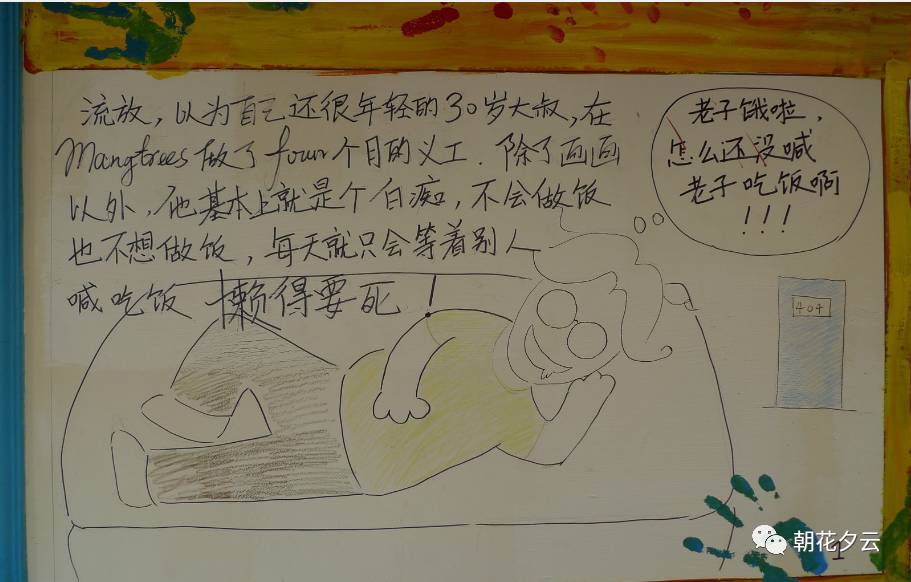 流放，以为自己还很年轻的30岁大叔，在
Mangtrees 做了 four 个月的义工．除了画画
以外，他基本上就是个白痴，不会做饭
也不想做饭，每天就只会等着别人
喊吃饭 懒得要死
老子饿啦，
怎么还没喊
老子吃饭啊
！！！
404
1
朝花夕云